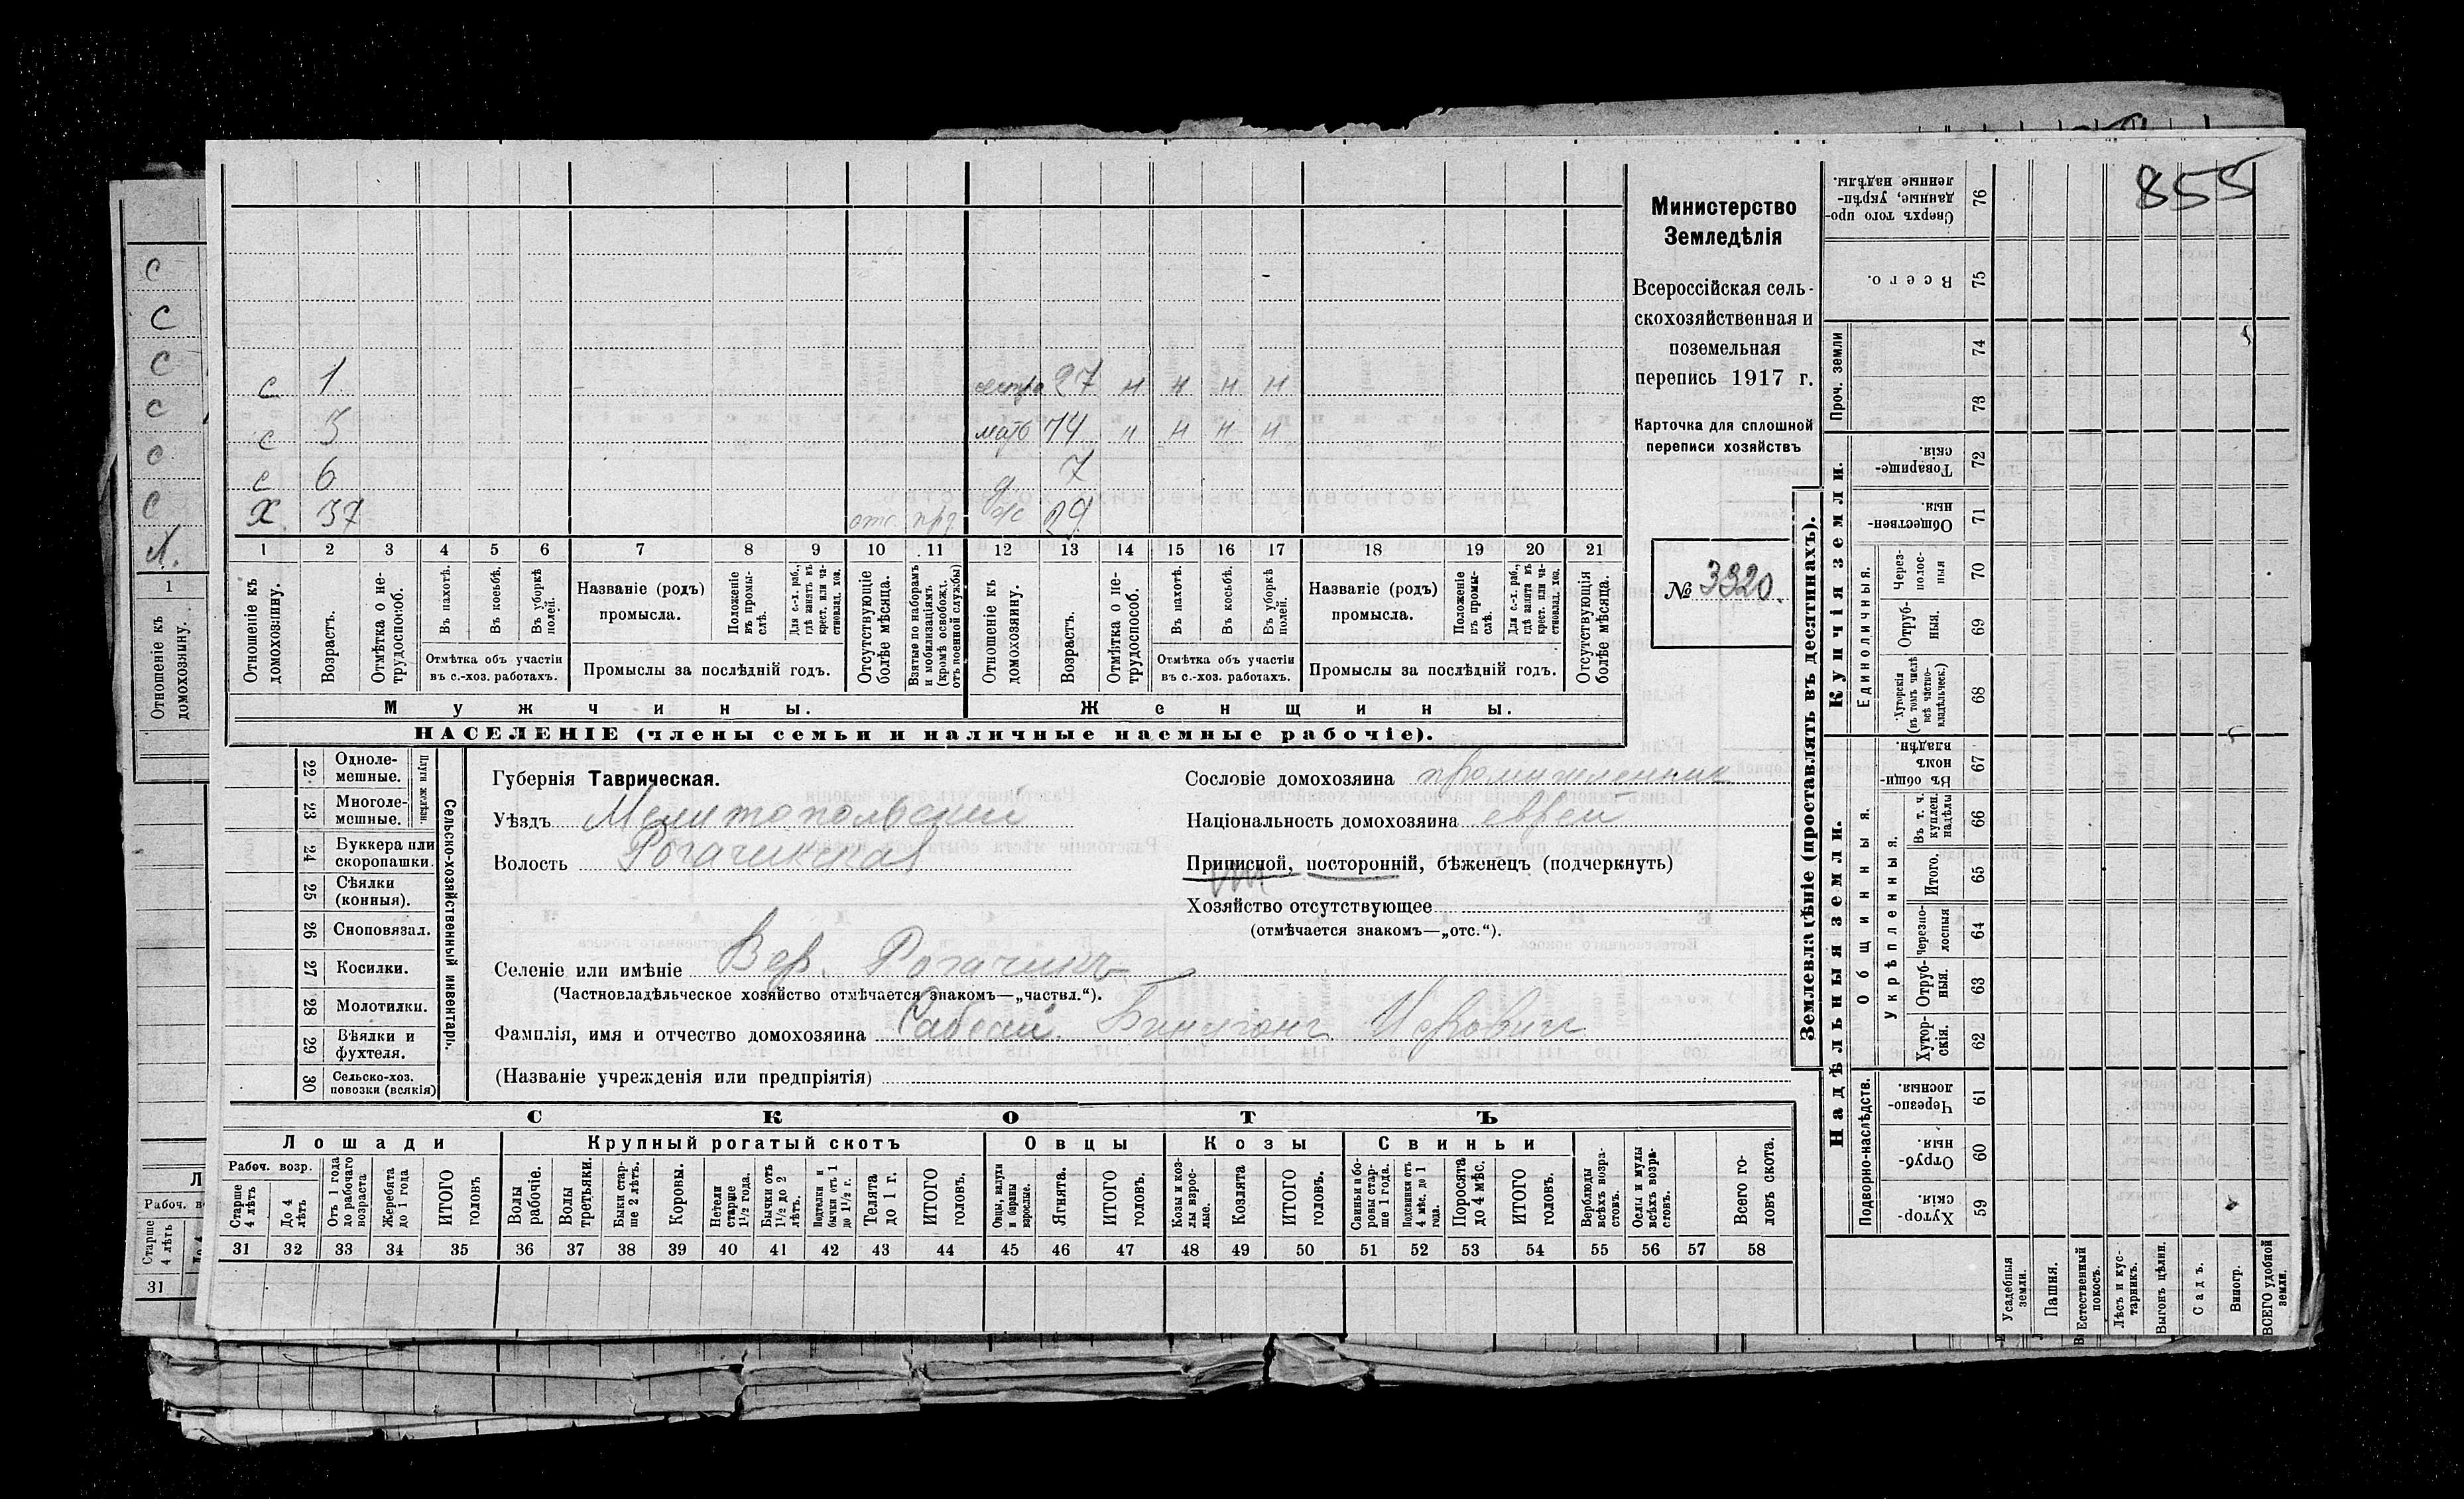 855
Министерство
Земледѣлія
Всероссійская сель-
скохозяйственная и
поземельная
перепись 1917 г.
Карточка для сплошной
переписи хозяйствъ
№ 3320.
с 1 сестра 27 н н н н
с 3 мать 74 н н н н
с 6 д 7
Х 37 отс ж 29
1 2 3 4 5 6 7 8 9 10 11 12 13 14 15 16 17 18 19 20 21
Отношеніе къ домохозяину.
Возрастъ.
Отмѣтка о не-трудоспособ.
Въ пахотѣ.
Въ косьбѣ.
Въ уборкѣ полей.
Отмѣтка объ участіи
въ с.-хоз. работахъ.
Названіе (родъ)
промысла.
Положеніе въ промы-слѣ.
Для с.-х. раб., гдѣ занятъ въ крест. или ча-стновлад. хоз.
Промыслы за послѣдній годъ.
Отсутствующіе болѣе мѣсяца.
Взятые по наборамъ и мобилизаціямъ (кромѣ освобожд. отъ военной службы)
Отношеніе къ домохозяину.
Возрастъ.
Отмѣтка о не-трудоспособ.
Въ пахотѣ.
Въ косьбѣ.
Въ уборкѣ полей.
Отмѣтка объ участіи
въ с.-хоз. работахъ.
Названіе (родъ)
промысла.
Положеніе въ промы-слѣ.
Для с.-х. раб., гдѣ занята въ крест. или ча-стновлад. хоз.
Промыслы за послѣдній годъ.
Отсутствующія болѣе мѣсяца.
Мужчины. Женщины.
НАСЕЛЕНІЕ (члены семьи и наличные наемные рабочіе).
Сельско-хозяйственный инвентарь.
Плуги желѣзн.
22 Одноле-мешные.
23 Многоле-мешные.
24 Буккера или скоропашки.
25 Сѣялки (конныя).
26 Сноповязал.
27 Косилки.
28 Молотилки.
29 Вѣялки и фухтеля.
30 Сельско-хоз. повозки (всякія)
Губернія Таврическая.
Уѣздъ Мелитопольский
Волость Рогачикская
Селеніе или имѣніе Вер. Рогачикъ
(Частновладѣльческое хозяйство отмѣчается знакомъ—„частвл.“).
Фамилія, имя и отчество домохозяина
(Названіе учрежденія или предпріятія)
Сословіе домохозяина промышленник
Національность домохозяина еврей
Приписной, посторонній, бѣженецъ (подчеркнуть)
Хозяйство отсутствующее
(отмѣчается знакомъ—„отс.“).
СКОТЪ
Лошади Крупный рогатый скотъ Овцы Козы Свиньи
Рабоч. возр.
Старше 4 лѣтъ
До 4 лѣтъ
Отъ 1 года до рабочаго возраста
Жеребята до 1 года
ИТОГО головъ
Волы рабочіе.
Волы третьяки.
Быки стар-ше 2 лѣтъ.
Коровы.
Нетели старше 1½ года.
Бычки отъ 1½ до 2 лѣтъ.
Подтелки и бычки отъ 1 до 1½ г.
Телята до 1 г.
ИТОГО головъ.
Овцы, валухи и бараны взрослые.
Ягнята.
ИТОГО головъ.
Козы и коз-лы взрос-лые.
Козлята
ИТОГО головъ.
Свиньи и бо-ровы стар-ше 1 года.
Подсвинки отъ 4 мѣс. до 1 года.
Поросята до 4 мѣс.
ИТОГО головъ.
Верблюды всѣхъ возра-стовъ.
Ослы и мулы всѣхъ возра-стовъ.
Всего го-ловъ скота.
31 32 33 34 35 36 37 38 39 40 41 42 43 44 45 46 47 48 49 50 51 52 53 54 55 56 57 58
Землевладѣніе (проставлять въ десятинахъ).
Купчія земли.
Надѣльныя земли.
Проч. земли
Единоличныя.
Общинныя.
Укрѣпленныя.
Подворно-наслѣдств.
Сверхъ того про-данные, укрѣп-ленные надѣлы. 76
Всего. 75
74
73
Товарище-скія. 72
Обществен-ныя. 71
Через-полос-ныя 70
Отруб-ныя. 69
Хуторскія (въ томъ числѣ всѣ частно-владѣльческ.) 68
Въ общи-номъ владѣн. 67
Въ т. ч. куплен. надѣлы 66
Итого. 65
Черезпо-лосныя 64
Отруб-ныя. 63
Хутор-скія. 62
Черезпо-лосныя 61
Отруб-ныя. 60
Хутор-скія. 59
Усадебныя земли.
Пашня.
Естественный покосъ.
Лѣсъ и кус-тарникъ.
Выгонъ цѣлин.
Садъ.
Виногр.
ВСЕГО удобной земли.
С
С
С
С
С
С
Х.
1
Отношеніе къ домохозяину.
Старше 4 лѣтъ
31